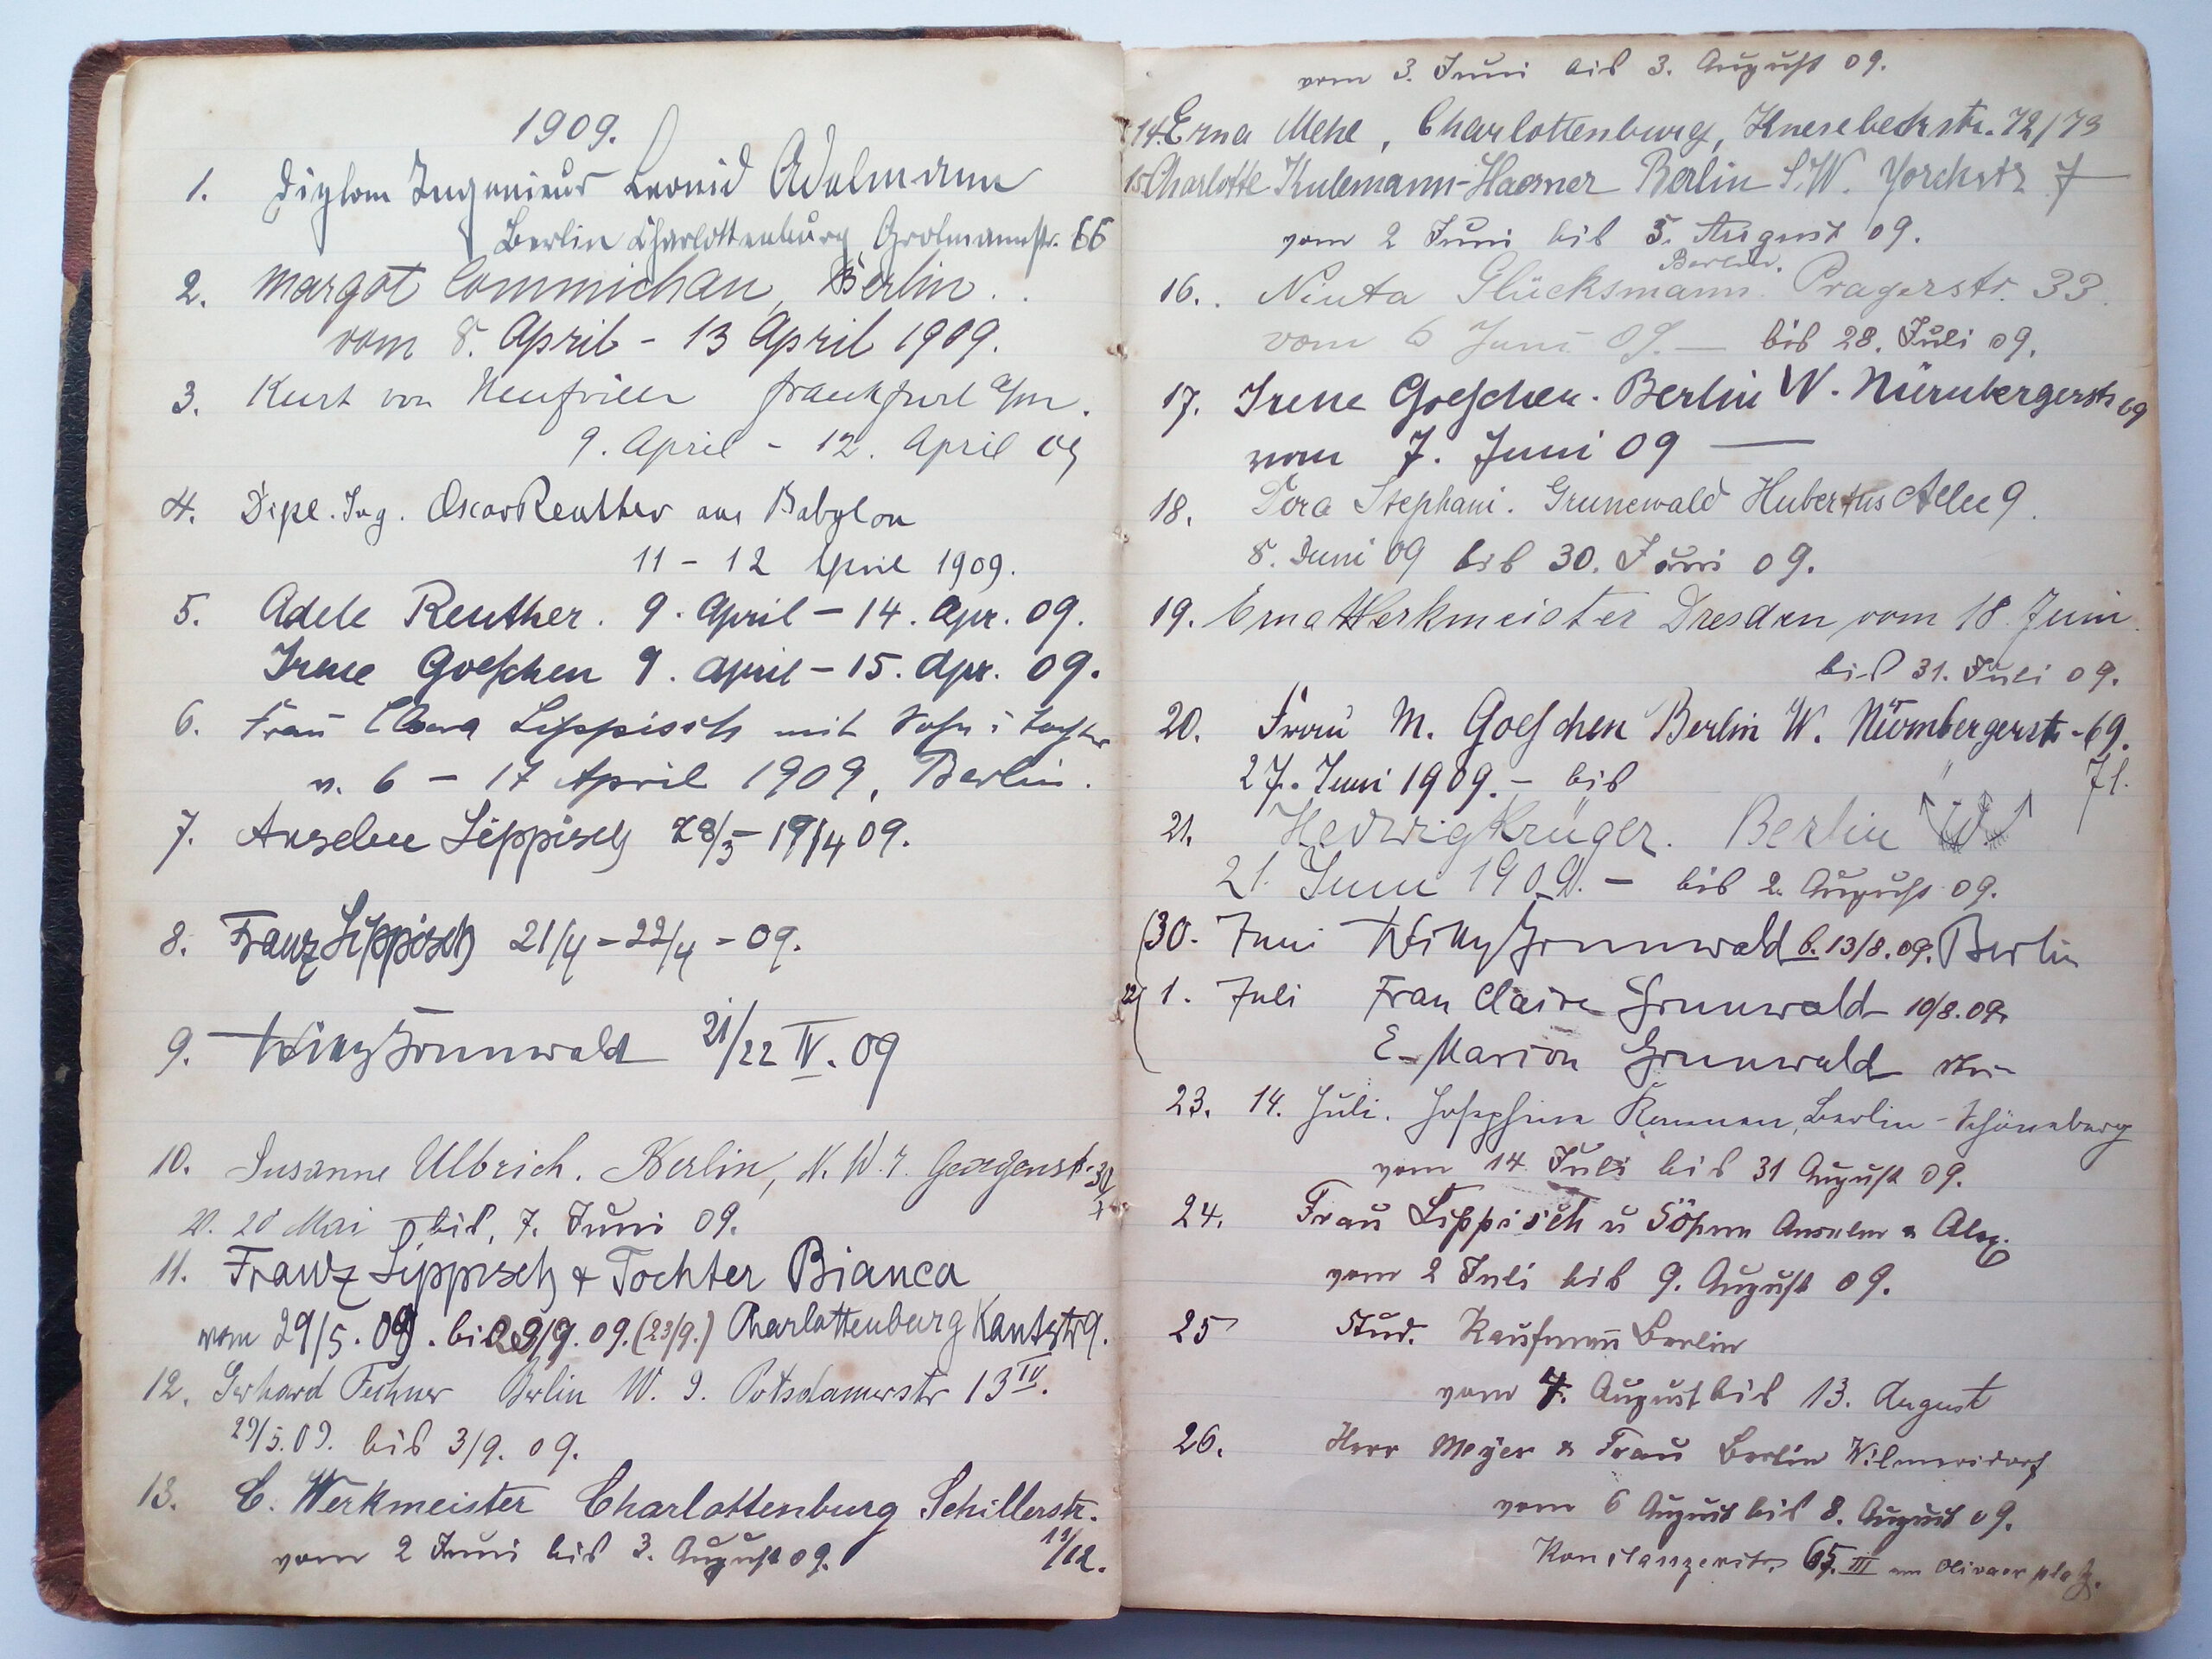 1909.
1. Diplom Ingenieur Leonid Adelmann
Berlin Charlottenburg Grolmannstr. 66
2. Margot Commichau, Berlin . .
vom 8. April - 13 April 1909.
3. Kurt von Neufville Frankfurt a/m.
9. April - 12. April 09
4. Dipl. Ing. Oscar Reuther aus Babylon
11 - 12 April 1909.
5. Adele Reuther. 9. April - 14. Apr. 09.
Irene Goeschen 9. April - 15. Apr. 09.
6. Frau Clara Lippisch mit Sohn u Tochter
v. 6 - 17 April 1909, Berlin.
7. Anselm Lippisch 28/3 - 19/4 09.
8. Franz Lippisch 21/4 - 22/4 - 09.
9. Willy Grunwald 21/22 IV. 09
10. Susanne Ulbrich. Berlin, N. W. 7. Georgenst.
v. 20 Mai bis 7. Juni 09.
11. Franz Lippisch & Tochter Bianca
vom 29/5. 09. bis 09. (23/9.) Charlottenburg Kantstr 9.
12. Gerhard Fechner Berlin W. 9. Potsdamerstr 13 IV.
29/5. 09. bis 3/9. 09.
13. C. Werkmeister Charlottenburg Schillerstr.
vom 2 Juni bis 3. August 09. 11/12.
vom 3. Juni bis 3. August 09.
14. Erna Mehl, Charlottenburg, Knesebeckstr. 72/73
15 Charlotte Kulemann-Haesner Berlin S.W. Yorckstr 7
vom 2 Juni bis 5. August 09.
Berlin.
16. Niuta Glücksmann. Pragerstr. 33.
vom 6 Juni 09. — bis 28. Juli 09.
17. Irene Goeschen. Berlin W. Nürnbergerstr 69
vom 7. Juni 09 —
18. Dora Stephani. Grunewald Hubertus Allee 9.
8. Juni 09 bis 30. Juni 09.
19. Erna Werkmeister Dresden vom 18. Juni
bis 31. Juli 09.
20. Frau M. Goeschen Berlin W. Nürnbergerstr - 69.
27. Juni 1909. - bis " 71.
21. Hedwig Krüger. Berlin W.
21. Juni 1909. - bis 2. August 09.
30. Juni Willy Grunwald b. 13/8. 09. Berlin
22 1. Juli Frau Claire Grunwald 10/8. 09.
E. Marion Grunwald
23. 14. Juli. Josephine Berlin - Schöneberg
vom 14. Juli bis 31 August 09.
24. Frau Lippisch u Söhne Anselm & Alex.
vom 2 Juli bis 9. August 09.
25 Stud. Kaufmann Berlin
vom 7. August bis 13. August
26. Herr Meyer & Frau Berlin Wilmersdorf
vom 6 August bis 8. August 09.
Konstanzerstr. 65. III am Olivaer platz.